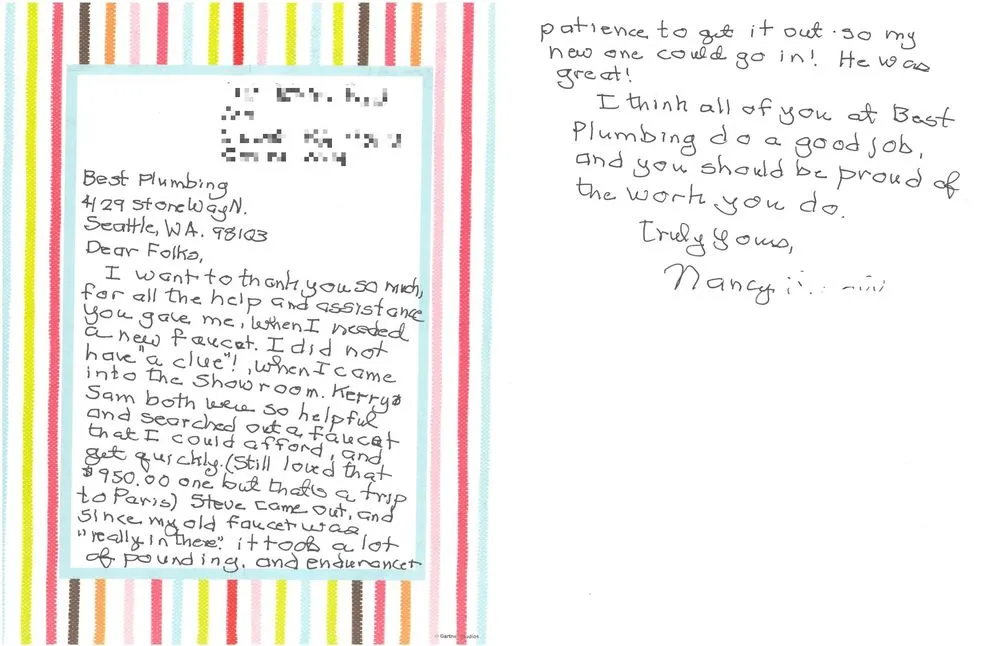 Best Plumbing
4129 Stone Way N.
Seattle, WA. 98103
Dear Folks,
I want to thank you so much,
for all the help and assistance
you gave me, when I needed
a new faucet. I did not
have "a clue"!, when I came
into the showroom. Kerry &
Sam both were so helpful
and searched out a faucet
that I could afford, and
get quickly. (Still loved that
$950.00 one but that's a trip
to Paris) Steve came out, and
since my old faucet was
"really in there". it took a lot
of pounding, and endurance +
© Gartner Studios
patience to get it out. so my
new one could go in! He was
great!
I think all of you at Best
Plumbing do a good job,
and you should be proud of
the work you do.
Truly yours,
Nancy